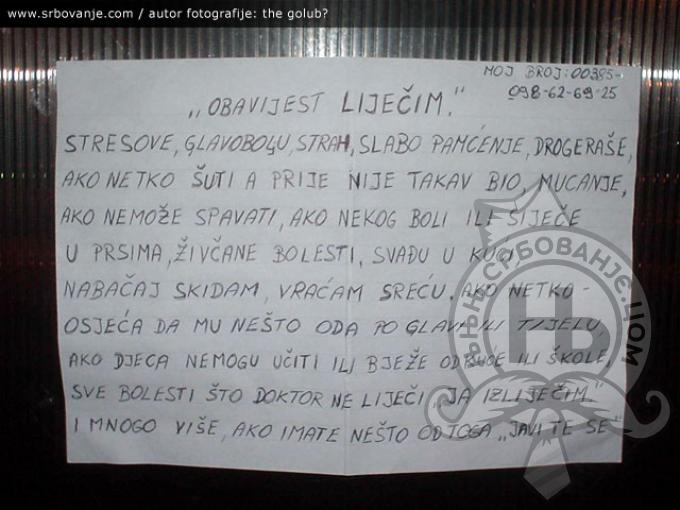 www.srbovanje.com / autor fotografije: the golub?
MOJ BROJ: 00385-
098-62-69-25
„OBAVIJEST LIJEČIM."
STRESOVE, GLAVOBOLJU, STRAH, SLABO PAMĆENJE, DROGERAŠE,
AKO NETKO ŠUTI A PRIJE NIJE TAKAV BIO, MUCANJE,
AKO NEMOŽE SPAVATI, AKO NEKOG BOLI ILI SIJEČE
U PRSIMA, ŽIVČANE BOLESTI, SVAĐU U KUĆI
NABAČAJ SKIDAM, VRAĆAM SREĆU. AKO NETKO -
OSJEĆA DA MU NEŠTO ODA PO GLAVI ILI TIJELU,
AKO DJECA NEMOGU UČITI ILI BJEŽE OD KUĆE ILI ŠKOLE,
SVE BOLESTI ŠTO DOKTOR NE LIJEČI „JA IZLIJEČIM."
I MNOGO VIŠE, AKO IMATE NEŠTO OD TOGA „JAVITE SE"